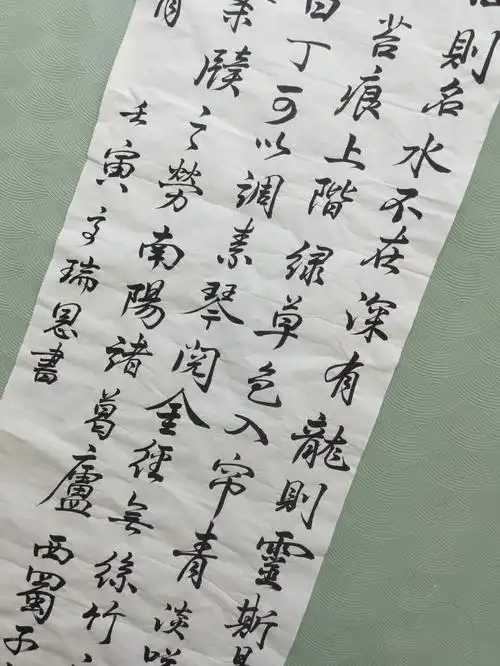 則名水不在深有龍則靈斯
苔痕上階緑草色入帘青淡
白丁可以調素琴閱金經無絲竹
牘之勞南陽諸葛廬西蜀子
壬寅瑞恩書